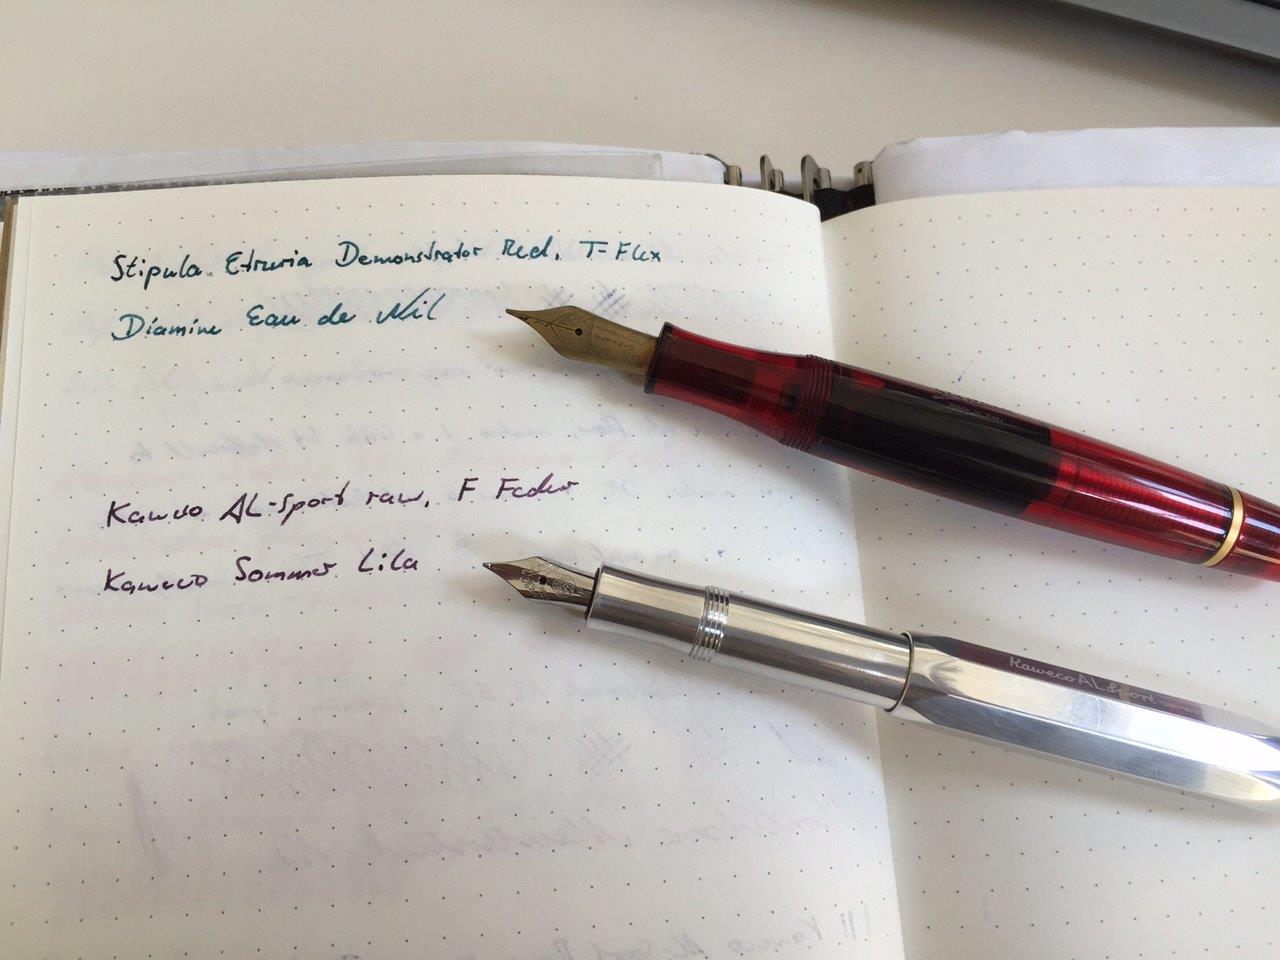 Stipula Etruria Demonstrator Red, T-Flex
Diamine Eau de Nil
Kaweco AL-Sport raw, F Feder
Kaweco Sommer Lila
Kaweco AL Sport